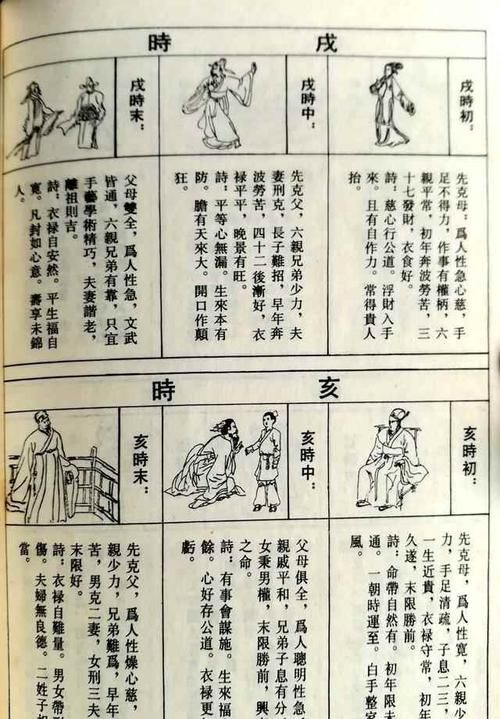 戌時
戌時初：
先克母：爲人性急心慈，手
足不得力，作事有權柄，六
親平常，初年奔波勞苦，三
十七發財，衣食好。
詩：慈心行公道。浮財入手
來。且有自作力。常得貴人
抬。
戌時中：
先克父，六親兄弟少力，夫
妻刑克，長子難招，早年奔
波勞苦，四十二後漸好，衣
祿平平，晚景有旺。
詩：平等心無漏。生來本有
防。膽有天來大。開口作顛
狂。
戌時末：
父母雙全，爲人性急，文武
皆通，六親兄弟有靠，只宜
手藝學術精巧，夫妻諧老，
離祖則吉。
詩：衣禄自安然。平生福自
寬。凡封如心意。壽享未錦
人。
亥時
亥時初：
先克母，爲人性寬，六親少
力，手足清疏，子息二三，
一生近貴，衣禄守常，初年
久遂，末限勝前。
詩：命帶自然有。初年限未
通。一朝時運至。白手整家
風。
亥時中：
父母俱全，爲人聰明性急，
親戚平和，兄弟子息有分，
女秉男權，末限勝前，興
之命。
詩：有事會謀施。生來福
餘。心好存公道。衣禄更
虧。
亥時末：
先克父，爲人性燥心慈，
親少力，兄弟難爲，早年
苦，男克二妻，女刑三夫
末限好。
詩：衣禄自難量。男女帶刑
傷。夫婦無良德。二姓子
當。